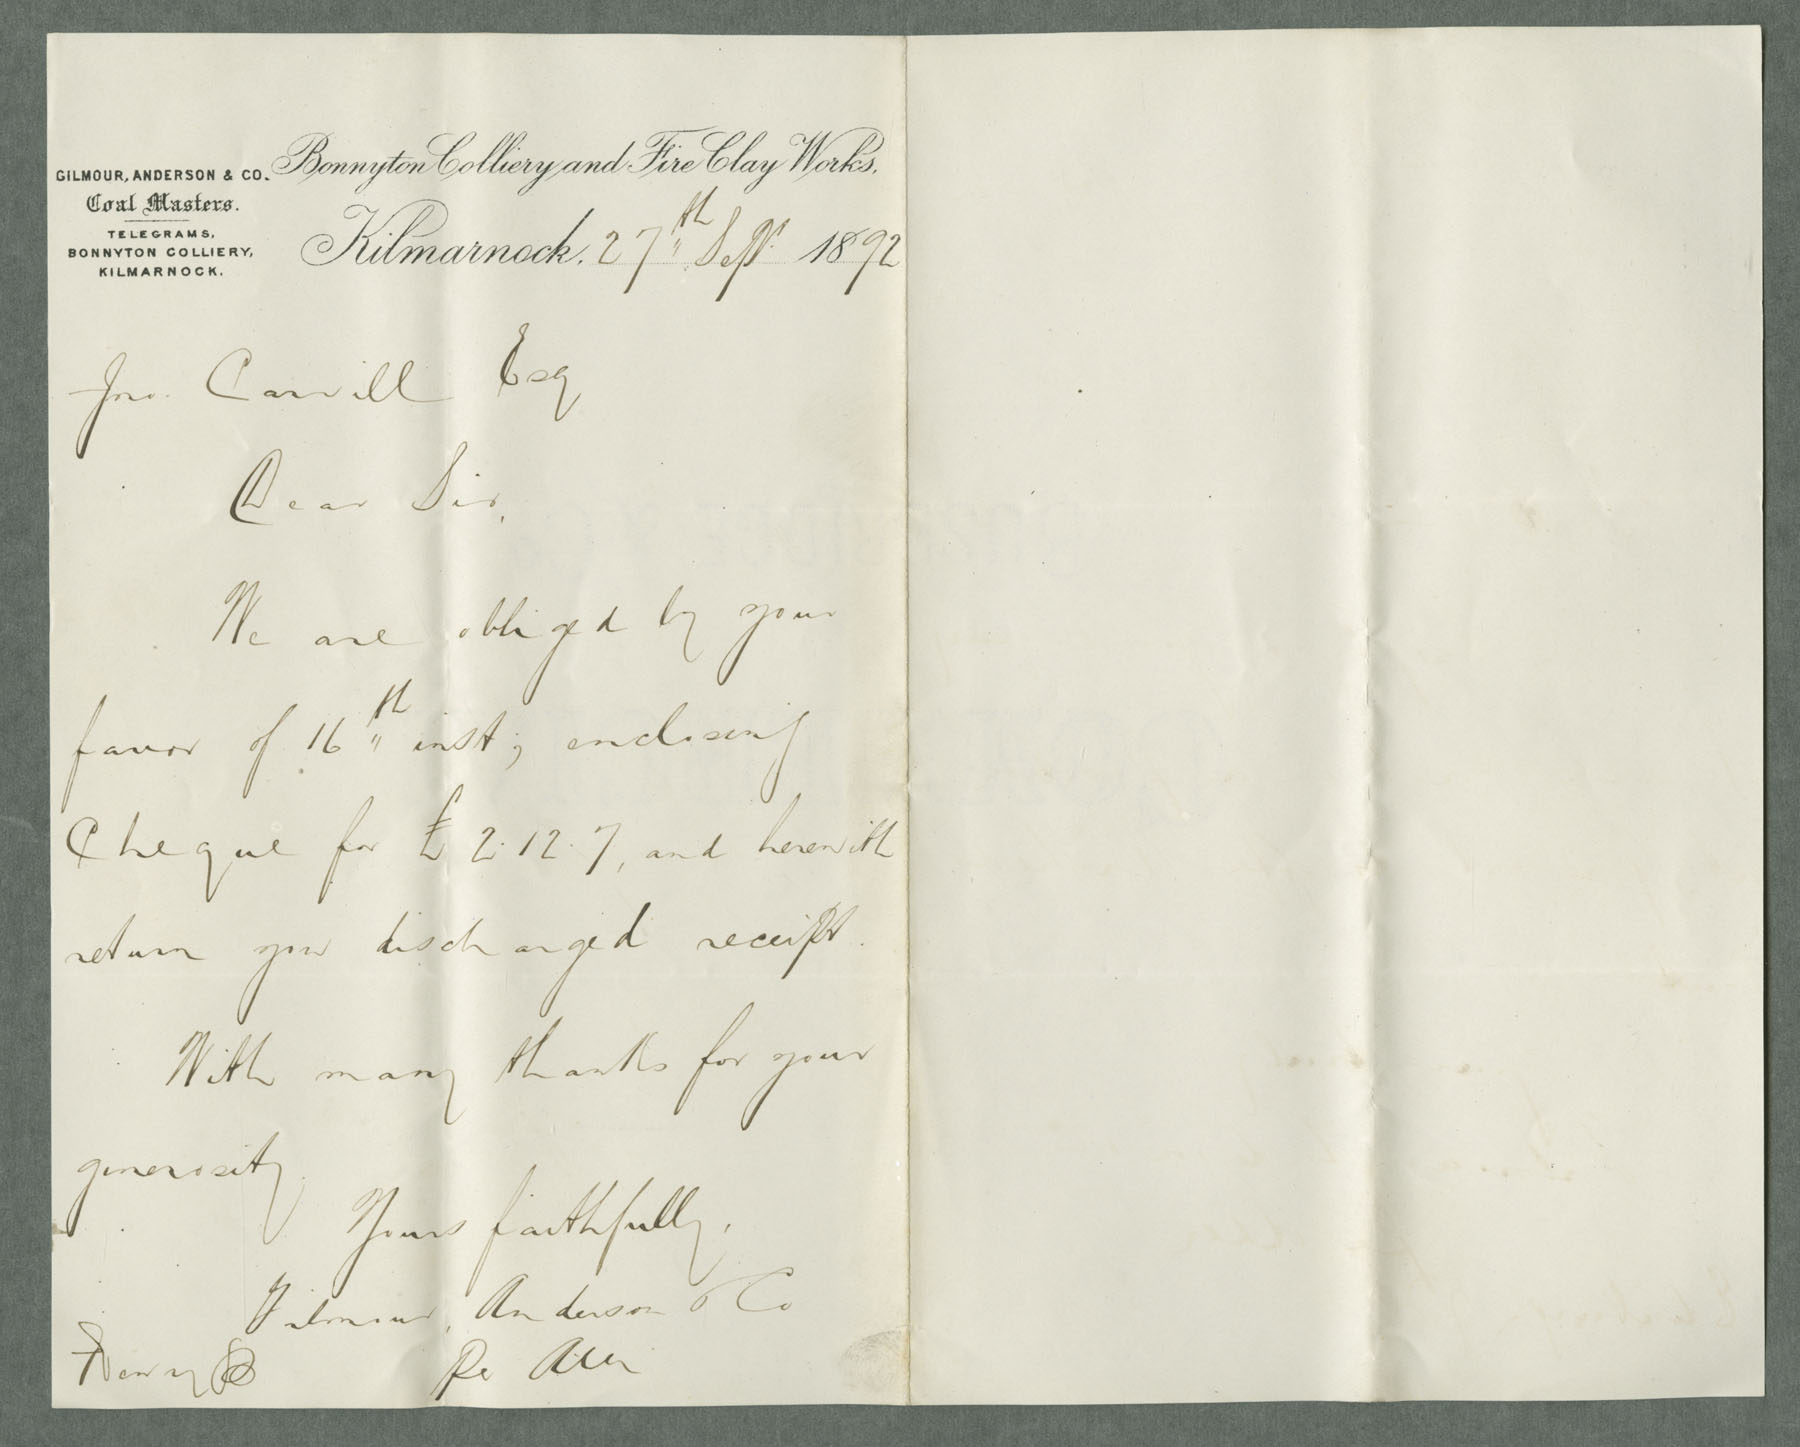 GILMOUR, ANDERSON & CO.
Coal Masters.
TELEGRAMS,
BONNYTON COLLIERY,
KILMARNOCK.
Bonnyton Colliery and Fire Clay Works,
Kilmarnock. 27th Sept. 1892
Jno. Carvill Esq
Dear Sir,
We are obliged by your
favor of 16th inst; enclosing
Cheque for £2.12.7, and herewith
return you discharged receipt.
With many thanks for your
generosity.
Yours faithfully,
Gilmour, Anderson & Co
Per
Newry